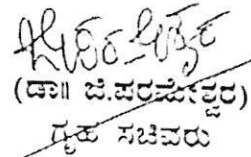 (ಡಾ॥ ಜಿ.ಪರಮೇಶ್ವರ)
ಗೃಹ ಸಚಿವರು